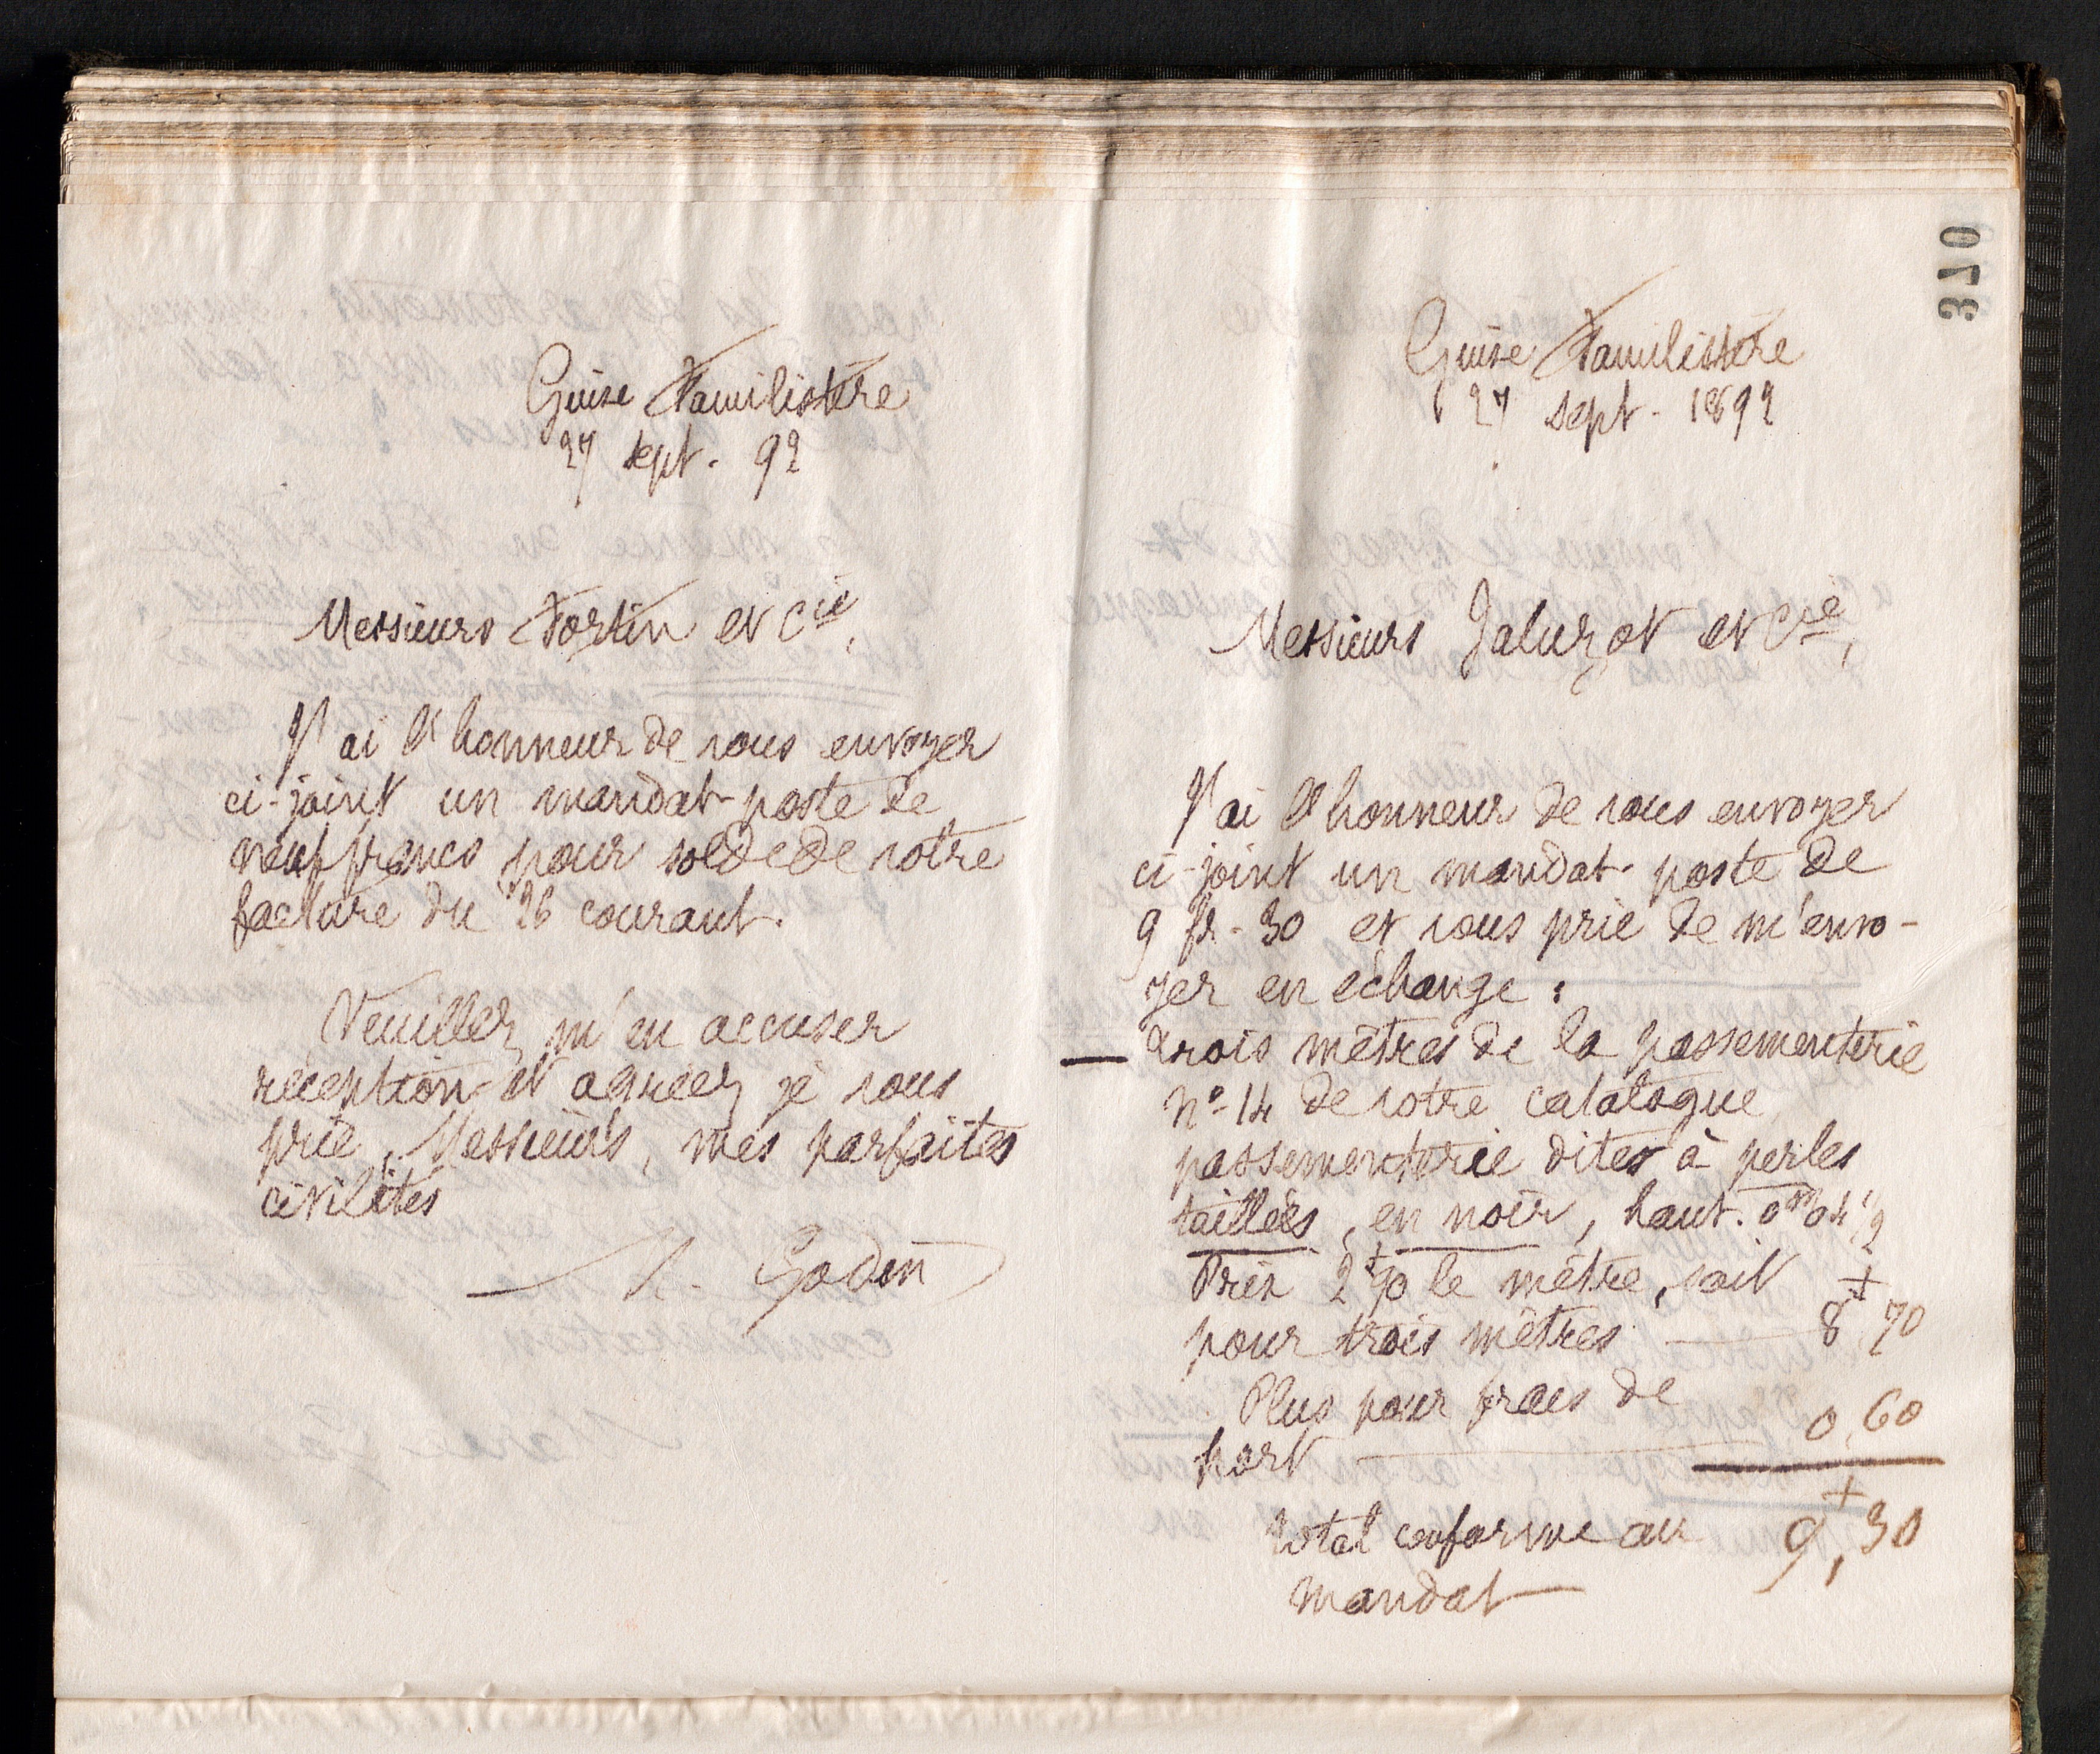 Guise Familistère
27 sept. 92
Messieurs Fortin et Cie,
J'ai l'honneur de vous envoyer
ci-joint un mandat-poste de
neuf francs pour solde de votre
facture du 26 courant.
Veuillez m'en accuser
réception et agréez, je vous
prie, Messieurs, mes parfaites
civilités
Godin
370
Guise Familistère
27 sept. 1892
Messieurs Jaluzot et Cie,
J'ai l'honneur de vous envoyer
ci-joint un mandat-poste de
9 fr. 30 et vous prie de m'envo-
yer en échange :
— trois mètres de la passementerie
n° 14 de votre catalogue
passementerie dites à perles
taillées, en noir, haut. 0m04 1/2
Prix 2f90 le mètre, soit
pour trois mètres — 8f70
Plus pour frais de
port — 0,60
total conforme au 9f,30
mandat